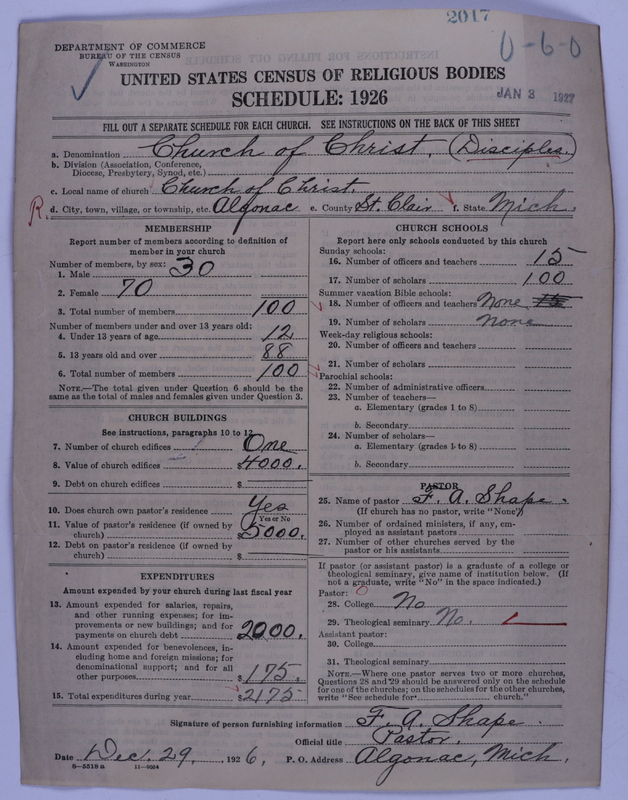 2017
0-6-0
DEPARTMENT OF COMMERCE
BUREAU OF THE CENSUS
WASHINGTON
UNITED STATES CENSUS OF RELIGIOUS BODIES
SCHEDULE: 1926
JAN 3 1927
FILL OUT A SEPARATE SCHEDULE FOR EACH CHURCH. SEE INSTRUCTIONS ON THE BACK OF THIS SHEET
a. Denomination Church of Christ, (Disciples.)
b. Division (Association, Conference,
Diocese, Presbytery, Synod, etc.)
c. Local name of church Church of Christ.
R. d. City, town, village, or township, etc. Algonac e. County St. Clair f. State Mich.
MEMBERSHIP
Report number of members according to definition of
member in your church
Number of members, by sex:
1. Male 30
2. Female 70
3. Total number of members 100
Number of members under and over 13 years old:
4. Under 13 years of age 12
5. 13 years old and over 88
6. Total number of members 100
NOTE.—The total given under Question 6 should be the
same as the total of males and females given under Question 3.
CHURCH BUILDINGS
See instructions, paragraphs 10 to 12
7. Number of church edifices One
8. Value of church edifices $4000.
9. Debt on church edifices $
10. Does church own pastor's residence? Yes
Yes or No
11. Value of pastor's residence (if owned by
church) $5000.
12. Debt on pastor's residence (if owned by
church) $
EXPENDITURES
Amount expended by your church during last fiscal year
13. Amount expended for salaries, repairs,
and other running expenses; for im-
provements or new buildings; and for
payments on church debt 2000.
14. Amount expended for benevolences, in-
cluding home and foreign missions; for
denominational support; and for all
other purposes $175.
15. Total expenditures during year $2175
CHURCH SCHOOLS
Report here only schools conducted by this church
Sunday schools:
16. Number of officers and teachers 15
17. Number of scholars 100
Summer vacation Bible schools:
18. Number of officers and teachers None 15
19. Number of scholars None
Week-day religious schools:
20. Number of officers and teachers
21. Number of scholars
Parochial schools:
22. Number of administrative officers
23. Number of teachers—
a. Elementary (grades 1 to 8)
b. Secondary
24. Number of scholars—
a. Elementary (grades 1 to 8)
b. Secondary
PASTOR
25. Name of pastor F. A. Shape.
(If church has no pastor, write "None")
26. Number of ordained ministers, if any, em-
ployed as assistant pastors
27. Number of other churches served by the
pastor or his assistants
If pastor (or assistant pastor) is a graduate of a college or
theological seminary, give name of institution below. (If
not a graduate, write "No" in the space indicated.)
Pastor:
28. College No
29. Theological seminary No.
Assistant pastor:
30. College
31. Theological seminary
NOTE.—Where one pastor serves two or more churches,
Questions 28 and 29 should be answered only on the schedule
for one of the churches; on the schedules for the other churches,
write "See schedule for church."
Signature of person furnishing information F. A. Shape.
Official title Pastor.
Date Dec. 29, 1926, P. O. Address Algonac, Mich.
8-5518 a 11-9054